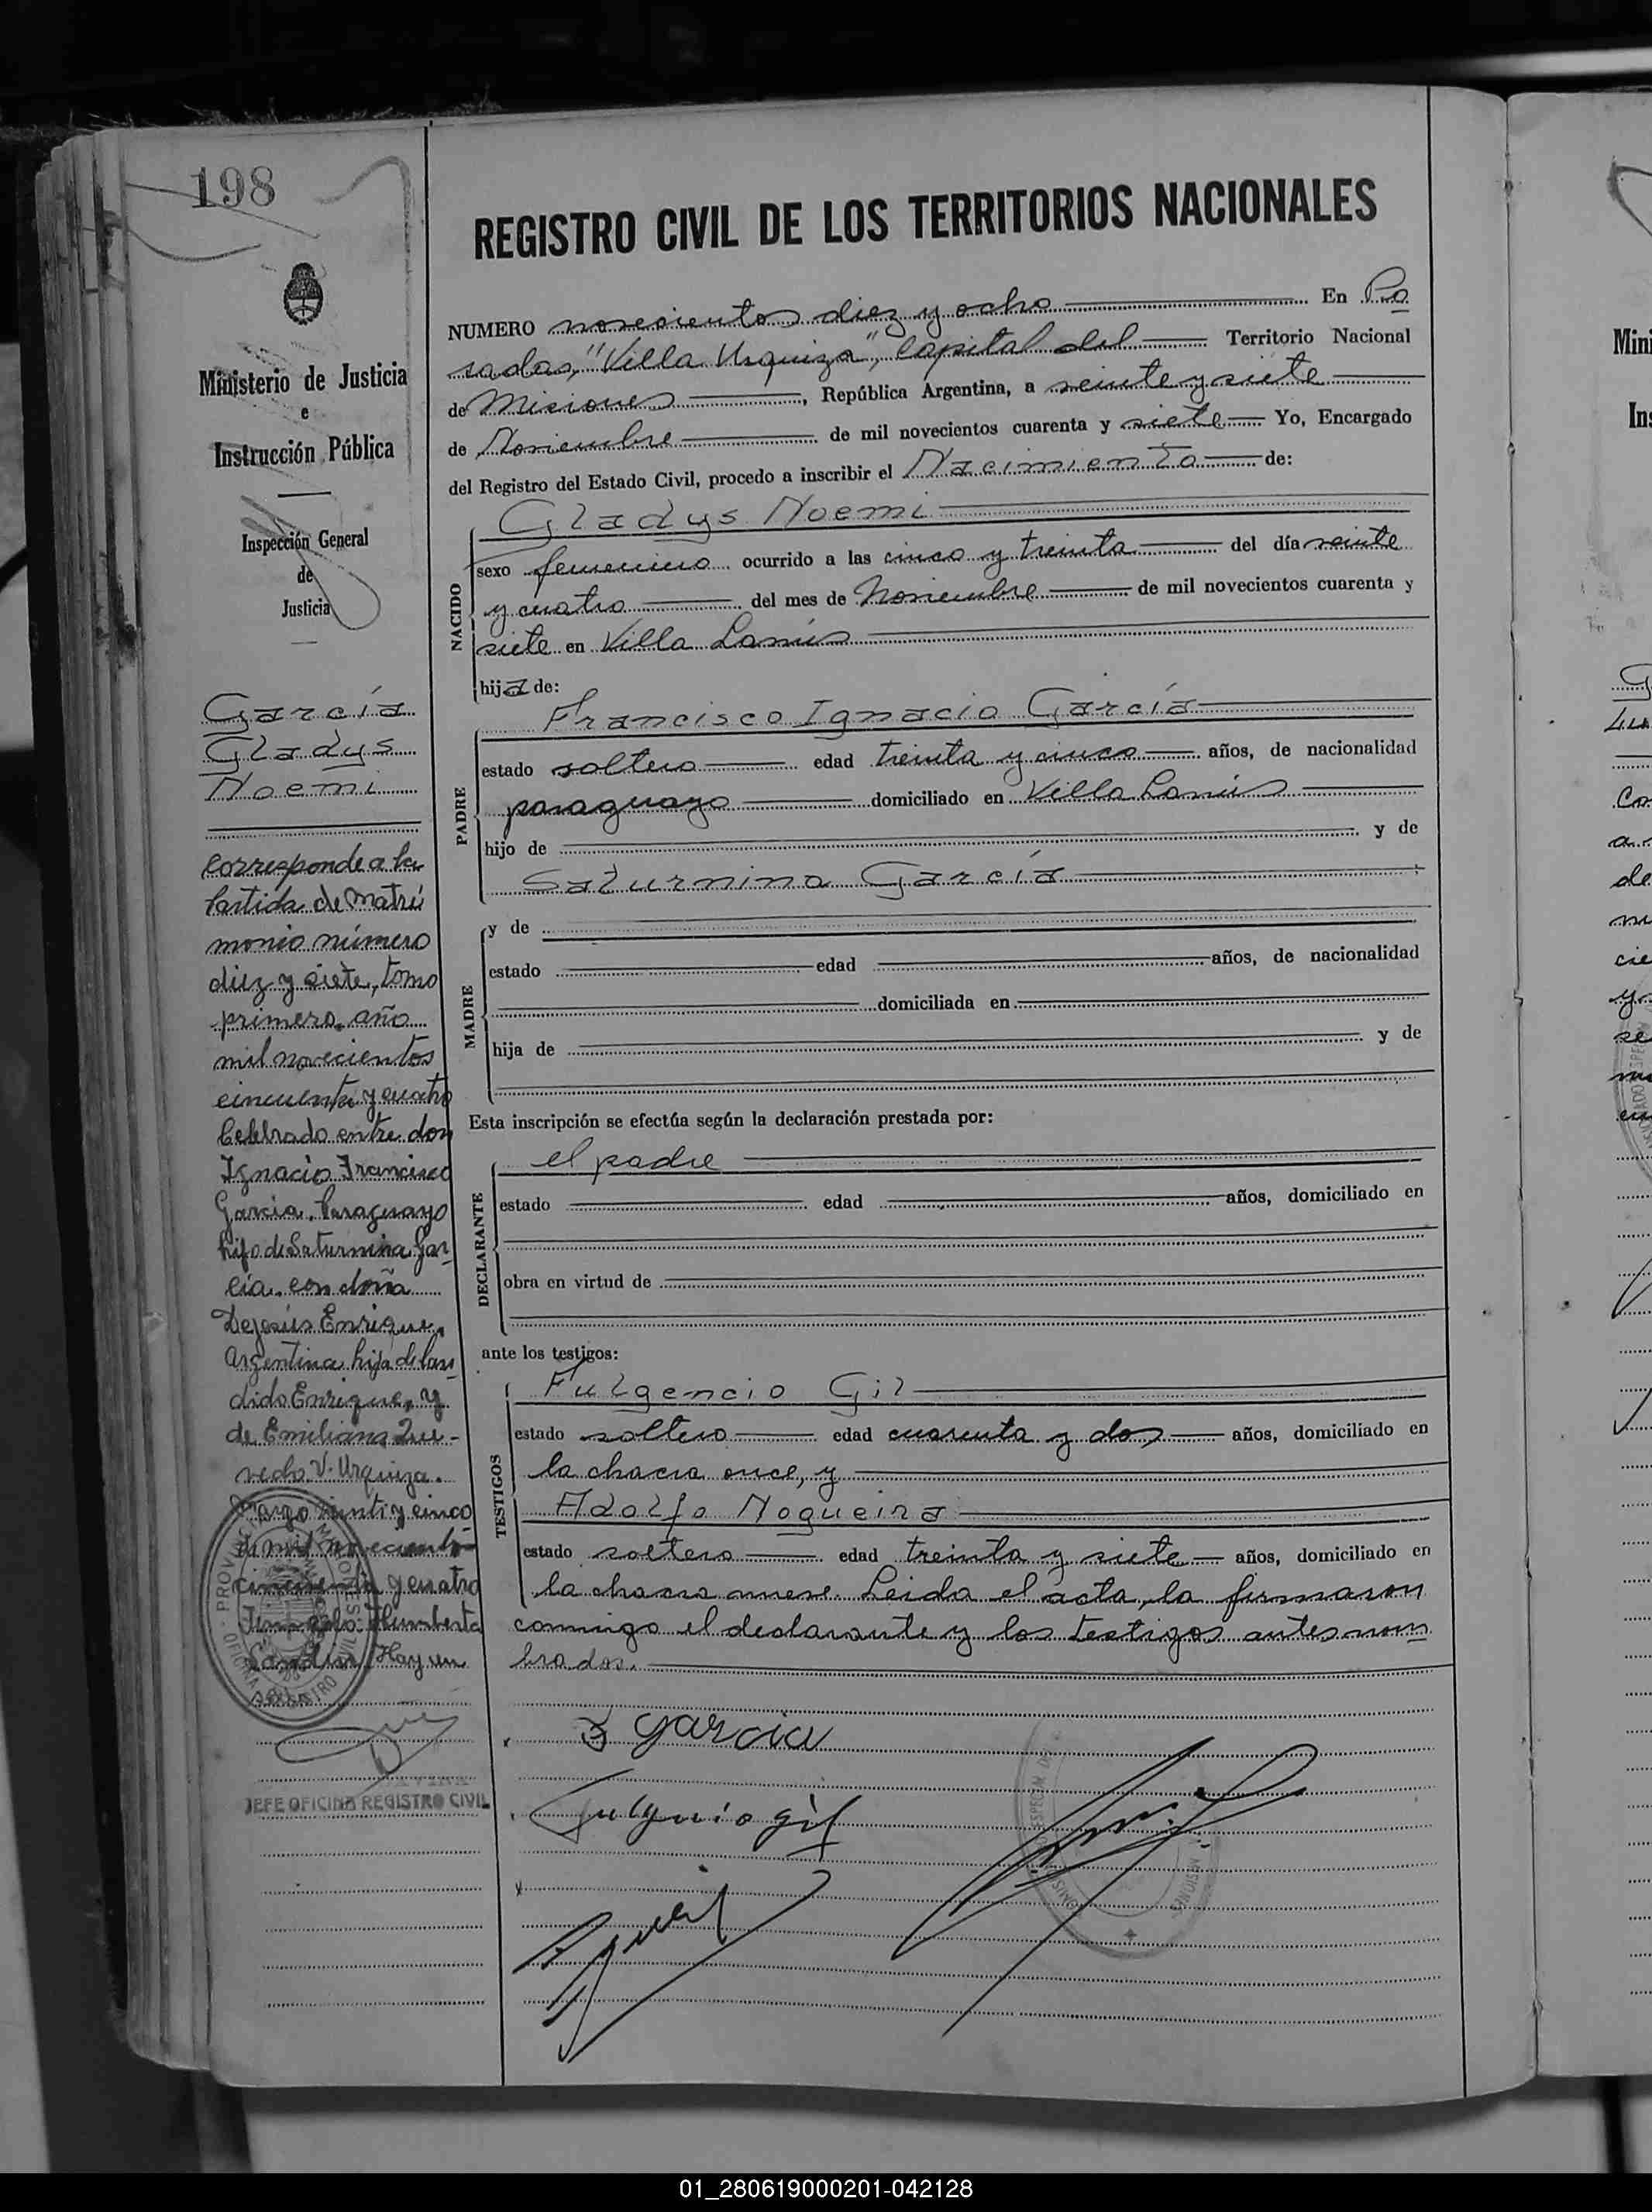 198
Ministerio de Justicia
e
Instrucción Pública
Inspección General
de
Justicia
García
Gladys
Noemi
Corresponde a la
Partida de Matri
monio número
diez y siete, tomo
primero. año
mil novecientos
cincuenta y cuatro
Celebrado entre don
Ignacio Francisco
Garcia. Paraguayo
hijo de Saturnina Gar-
cia. con doña
Dejesús Enrique,
Argentina hija de Can-
dido Enrique, y
de Emiliana Que-
vedo V. Urquiza.
Marzo veinti y cinco
de mil novecientos
cincuenta y cuatro
Humberto
Hay un
sello.
JEFE OFICINA REGISTRO CIVIL
REGISTRO CIVIL DE LOS TERRITORIOS NACIONALES
NUMERO novecientos diez y ocho En Po
sadas, "Villa Urquiza", Capital del Territorio Nacional
de Misiones, República Argentina, a veinte y siete
de Noviembre de mil novecientos cuarenta y siete Yo, Encargado
del Registro del Estado Civil, procedo a inscribir el Nacimiento de:
Gladys Noemi
NACIDO
sexo femenino ocurrido a las cinco y treinta del día veinte
y cuatro del mes de Noviembre de mil novecientos cuarenta y
siete en Villa Lanús
hija de:
Francisco Ignacio García
PADRE
estado soltero edad treinta y cinco años, de nacionalidad
paraguayo domiciliado en Villa Lanús
hijo de y de
Saturnina García
MADRE
y de
estado edad años, de nacionalidad
domiciliada en
hija de y de
Esta inscripción se efectúa según la declaración prestada por:
el padre
DECLARANTE
estado edad años, domiciliado en
obra en virtud de
ante los testigos:
Fulgencio Gil
TESTIGOS
estado soltero edad cuarenta y dos años, domiciliado en
la chacra once, y
Adolfo Nogueira
estado soltero edad treinta y siete años, domiciliado en
la chacra nueve. Leida el acta, la firmaron
conmigo el declarante y los testigos antes nom
brados.
García
Fulgencio gil
01_280619000201-042128